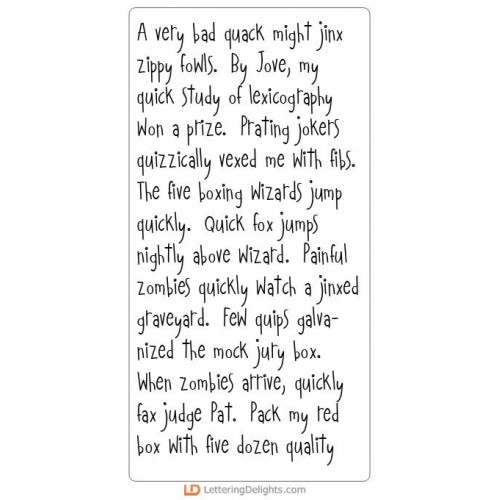 A very bad quack might jinx
zippy fowls. By Jove, my
quick study of lexicography
won a prize. Prating jokers
quizzically vexed me with fibs.
The five boxing wizards jump
quickly. Quick fox jumps
nightly above wizard. Painful
zombies quickly watch a jinxed
graveyard. Few quips galva-
nized the mock jury box.
When zombies arrive, quickly
fax judge Pat. Pack my red
box with five dozen quality
LD LetteringDelights.com